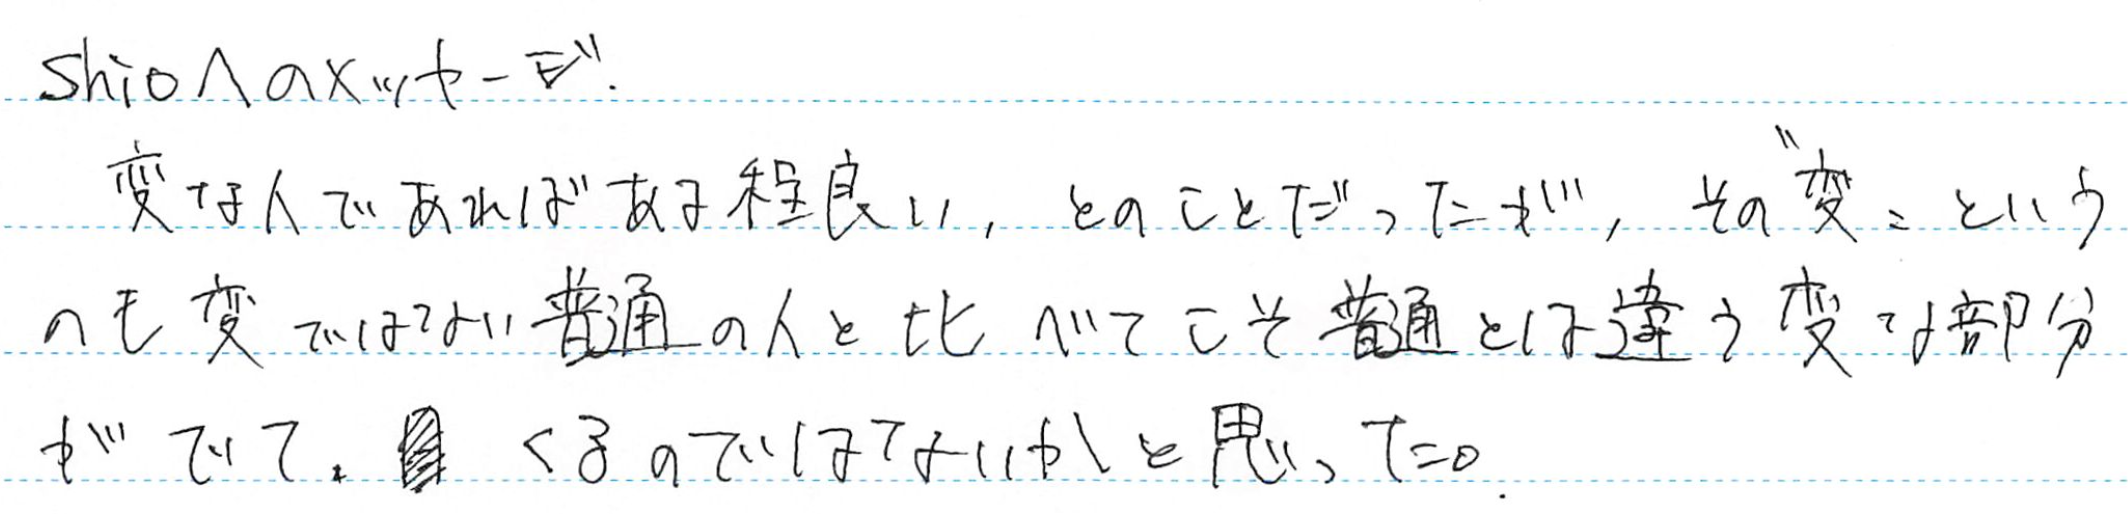 shioへのメッセージ.
変な人であればある程良い, とのことだったが, その"変"という
のも変ではない普通の人と比べてこそ普通とは違う変な部分
がでて. くるのではないかと思った。